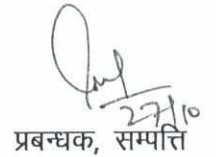 27/10
प्रबन्धक, सम्पत्ति